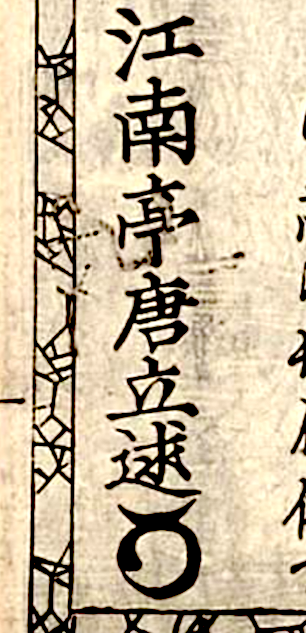 江南亭唐立逑